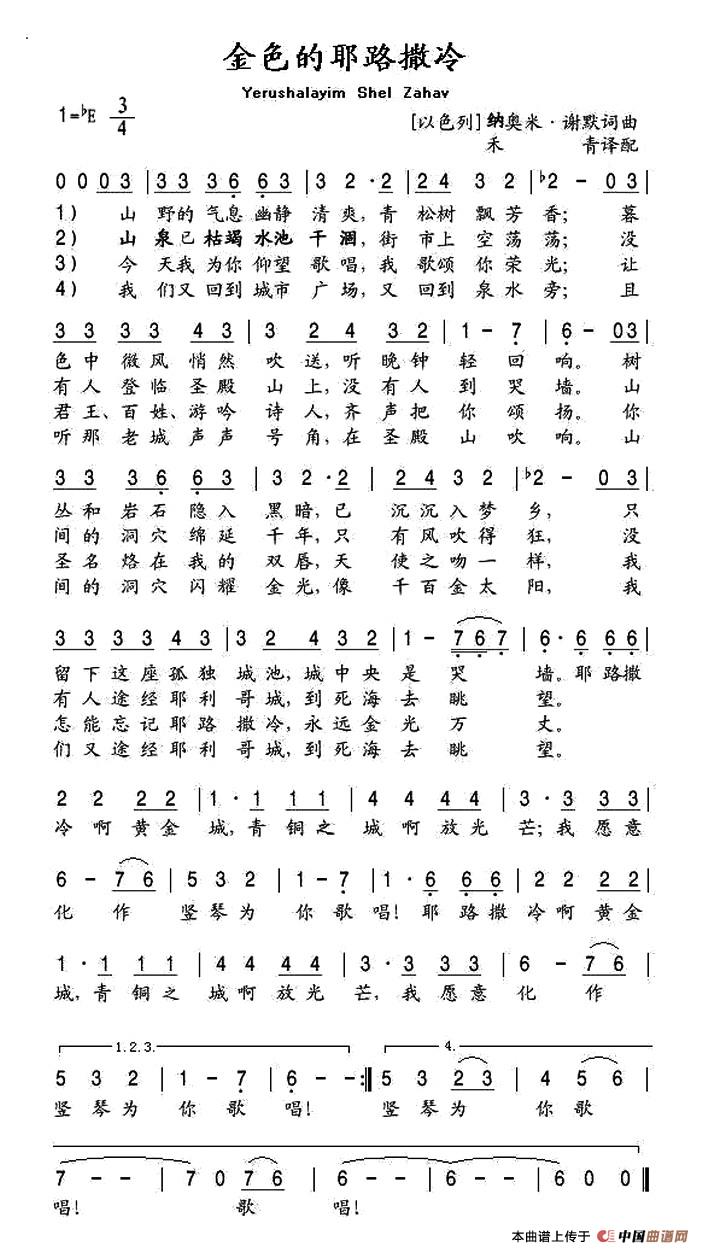 金色的耶路撒冷
Yerushalayim Shel Zahav
1=♭E 3/4
[以色列]纳奥米·谢默词曲
禾 青译配
0 0 0 3 | 3 3 3 6 6 3 | 3 2 · 2 | 2 4 3 2 | ♭2 - 0 3 |
1) 山 野的 气息 幽静 清 爽, 青 松树 飘 芳 香; 暮
2) 山 泉已 枯竭 水池 干 涸, 街 市上 空 荡 荡; 没
3) 今 天我 为你 仰望 歌 唱, 我 歌颂 你 荣 光; 让
4) 我 们又 回到 城市 广 场, 又 回到 泉 水 旁; 且
3 3 3 3 4 3 | 3 2 4 3 | 3 2 2 | 1 - 7 | 6 - 0 3 |
色中 微风 悄然 吹 送, 听 晚 钟 轻 回 响。 树
有人 登临 圣殿 山 上, 没 有 人 到 哭 墙。 山
君王、百姓、游吟 诗 人, 齐 声 把 你 颂 扬。 你
听那 老城 声声 号 角, 在 圣 殿 山 吹 响。 山
3 3 3 6 6 3 | 3 2 · 2 | 2 4 3 2 | ♭2 - 0 3 |
丛和 岩石 隐入 黑 暗, 已 沉沉 入 梦 乡, 只
间的 洞穴 绵延 千 年, 只 有风 吹 得 狂, 没
圣名 烙在 我的 双 唇, 天 使之 吻 一 样, 我
间的 洞穴 闪耀 金 光, 像 千百 金 太 阳, 我
3 3 3 3 4 3 | 3 2 4 4 3 2 | 1 - 7 6 7 | 6 · 6 6 6 |
留下 这座 孤独 城 池, 城 中央 是 哭 墙。 耶 路撒
有人 途经 耶利 哥 城, 到 死海 去 眺 望。
怎能 忘记 耶路 撒 冷, 永 远金 光 万 丈。
们又 途经 耶利 哥 城, 到 死海 去 眺 望。
2 2 2 2 | 1 · 1 1 1 | 4 4 4 4 | 3 · 3 3 3 |
冷 啊 黄金 城, 青 铜之 城 啊 放光 芒; 我 愿意
6 - 7 6 | 5 3 2 | 1 - 7 | 1 · 6 6 6 | 2 2 2 2 |
化 作 竖 琴 为 你 歌 唱! 耶 路撒 冷 啊 黄金
1 · 1 1 1 | 4 4 4 4 | 3 · 3 3 3 | 6 - 7 6 |
城, 青 铜之 城 啊 放光 芒, 我 愿意 化 作
1.2.3. 4.
5 3 2 | 1 - 7 | 6 - - :| 5 3 2 3 | 4 5 6 |
竖 琴 为 你 歌 唱! 竖 琴 为 你 歌
7 - - | 7 0 7 6 | 6 - - | 6 - - | 6 0 0 ‖
唱! 歌 唱!
本曲谱上传于 中国曲谱网